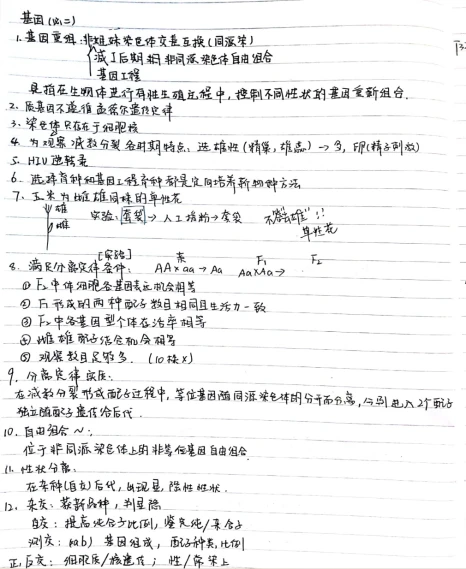 基因(必二)
1. 基因重组:非姐妹染色体交叉互换(同源染)
减Ⅰ后期 非同源染色体自由组合
基因工程
是指在生物体进行有性生殖过程中,控制不同性状的基因重新组合.
2. 质基因不遵循孟德尔遗传定律
3. 染色体只存在于细胞核
4. 为观察减数分裂各时期特点,选雄性(精巢,雄蕊)→多,卵(精子则少)
5. HIV 逆转录
6. 选择育种和基因工程育种都是定向培养新物种方法
7. 玉米为雌雄同株的单性花
雄
雌
实验:套袋→人工授粉→套袋 不会"去雄"!!
单性花
[实验]
8. 满足分离定律条件: AA×aa→Aa Aa×Aa→
亲 F₁ F₂
① F₂中体细胞各基因表达机会相等
② F₁形成的两种配子数目相同且生活力一致
③ F₂中各基因型个体存活率相等
④ 雌雄配子结合机会相等
⑤ 观察数目足够多.(10株×)
9. 分离定律实质:
在减数分裂形成配子过程中,等位基因随同源染色体的分开而分离,分别进入2个配子
独立随配子遗传给后代.
10. 自由组合~:
位于非同源染色体上的非等位基因自由组合
11. 性状分离:
在杂种(自交)后代,出现显,隐性性状.
12. 杂交:获新品种,判显隐
自交:提高纯合子比例,鉴定纯/杂合子
测交:(ab)基因组成,配子种类,比例
正反交:细胞质/核遗传;性/常染上